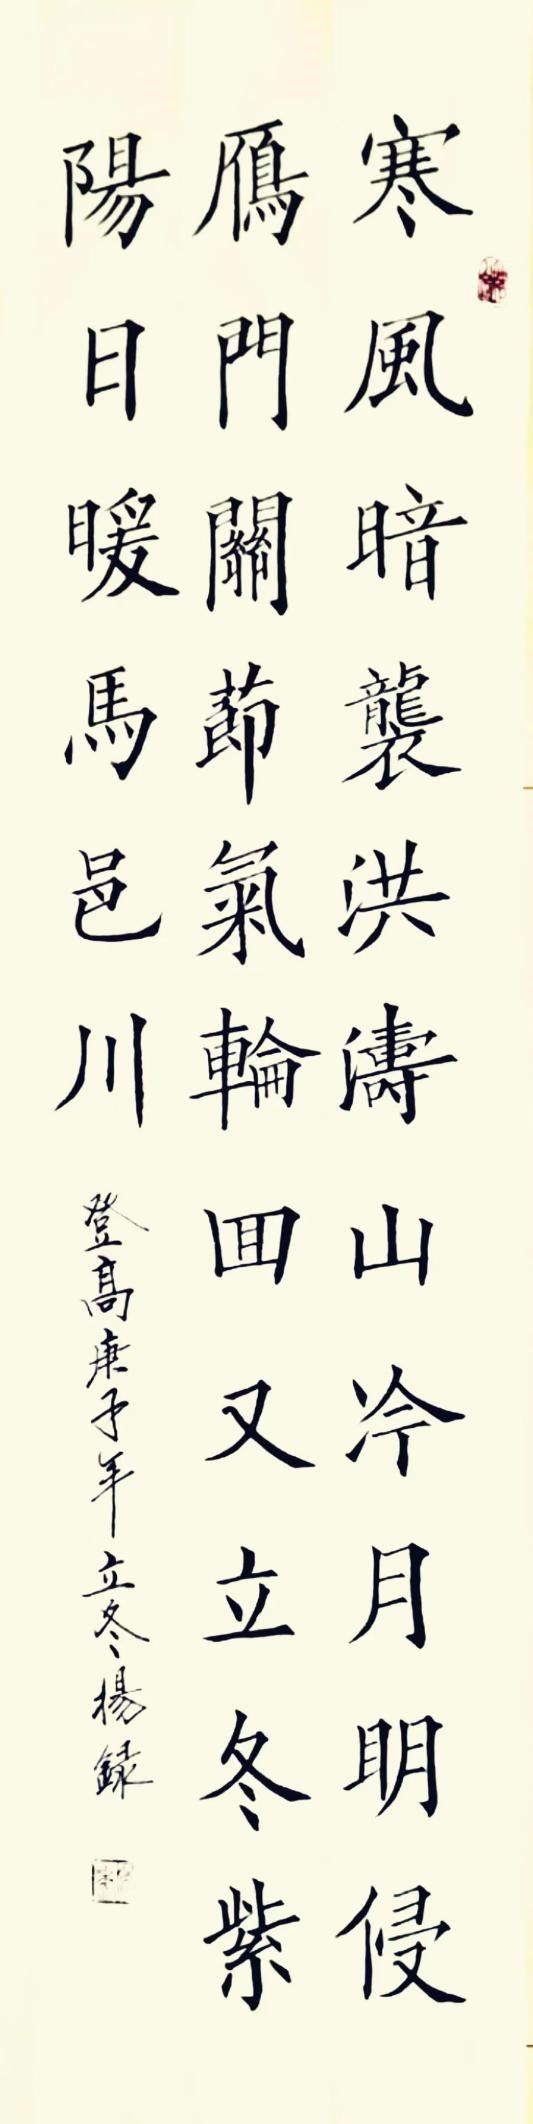 寒風暗襲洪濤山冷月明侵
鴈門關節氣輪囬又立冬紫
陽日暖馬邑川
登高庚子年立冬楊錄